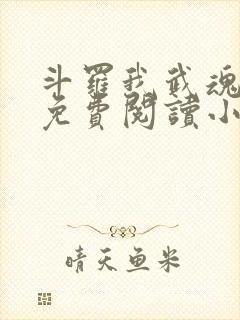 斗羅我武魂
免費閱讀小
晴天魚米